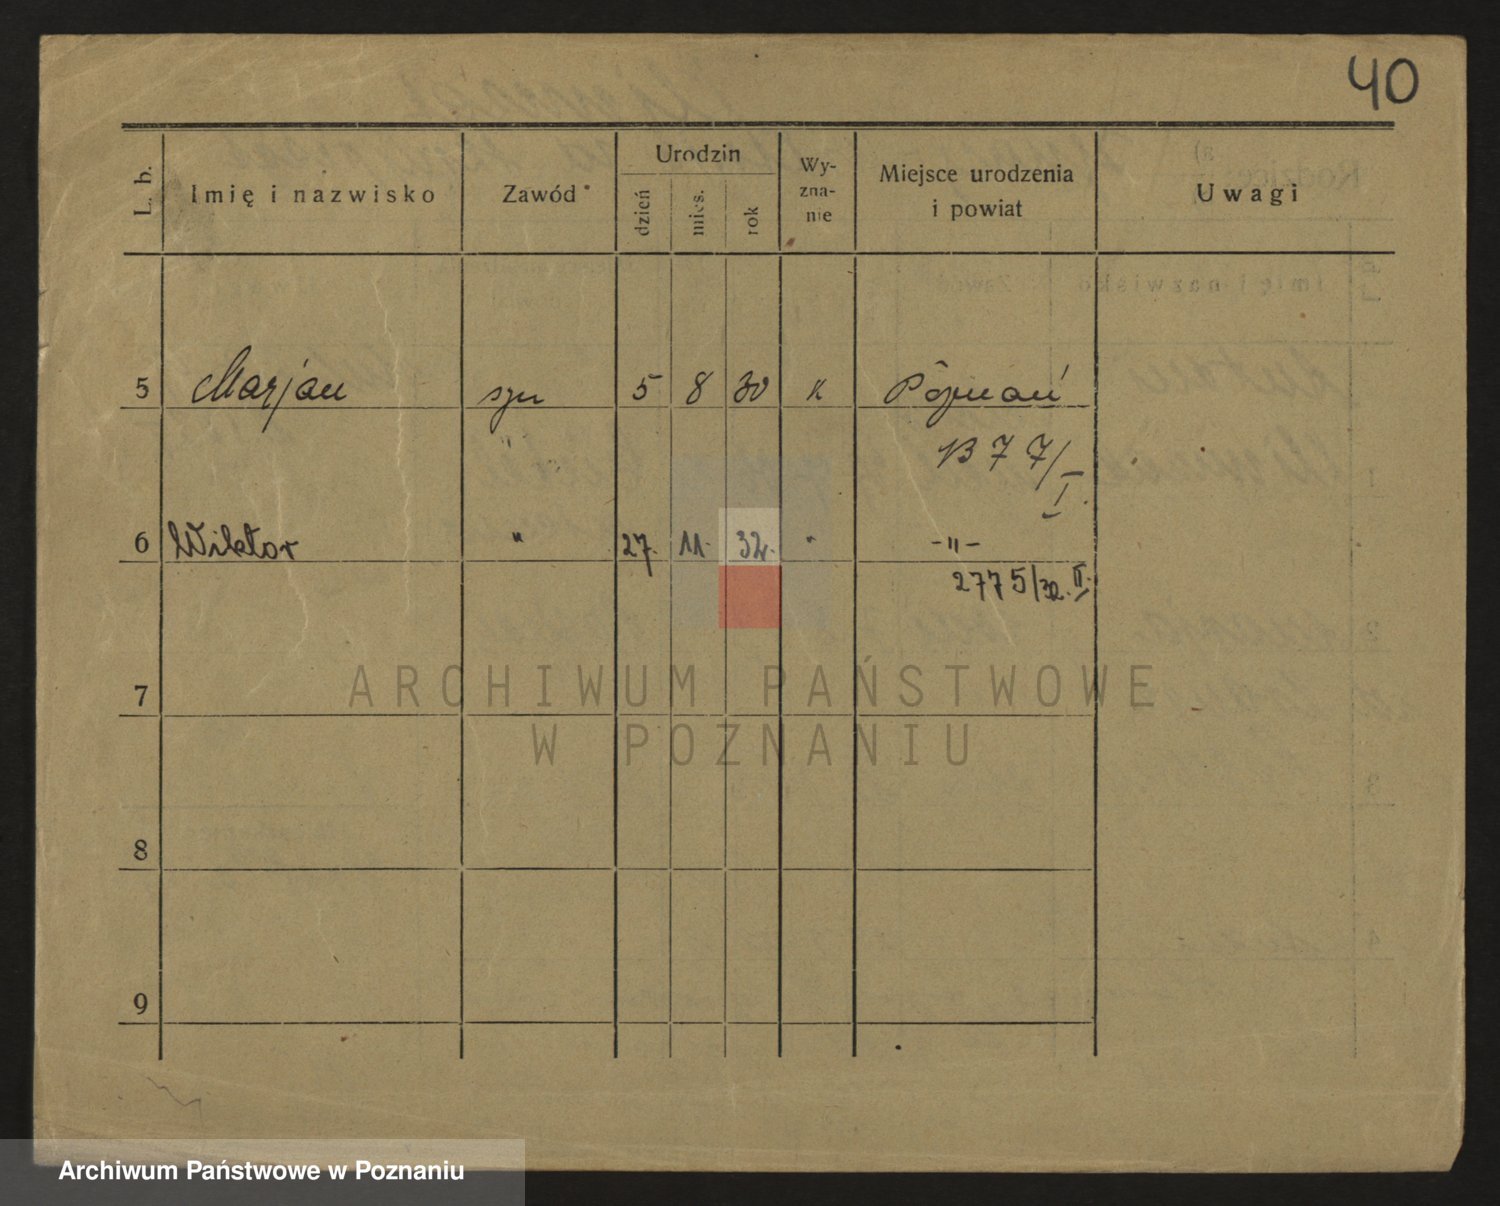 40
L. b.
Imię i nazwisko
Zawód
Urodzin
dzień
mies.
rok
Wy-
zna-
nie
Miejsce urodzenia
i powiat
Uwagi
5 Marjan syn 5 8 30 K Poznań
B 77/I
6 Wiktor " 27. 11. 32. " -"-
2775/32. II.
7
8
9
ARCHIWUM PAŃSTWOWE
W POZNANIU
Archiwum Państwowe w Poznaniu